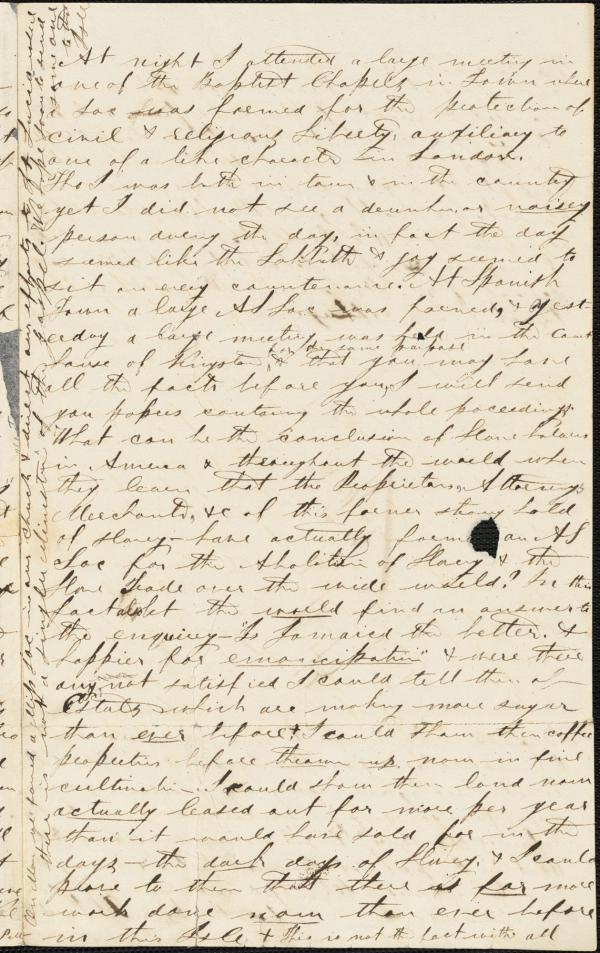 At night I attended a large meeting in
one of the Baptist Chapels in Town where
a Soc was formed for the protection of
civil & religious Liberty, auxiliary to
one of a like character in London.
Tho I was both in town & in the country
yet I did not see a drunken or noisey
person during the day, in fact the day
seemed like the Sabbath & joy seemed to
sit on every countenance. At Spanish
Town a large AS Soc was formed, & yest-
erday a large meeting was held in the court
house of Kingston for the same purpose & that you may have
all the facts before you, I will send
you papers containing the whole proceedings.
What can be the conclusion of Slave holders
in America & throughout the world when
they learn that the Proprietors, Attorneys
Merchants, &c of this former strong hold
of slavery - have actually formed an AS
Soc for the Abolition of Slavery & the
Slave trade over the wide world? In this
fact let the world find an answer to
the enquiry - "Is Jamaica the better, &
happier for emancipation" & were there
any not satisfied I could tell them of
Estates which are making more sugar
than ever before & I could show them coffee
properties before thrown up now in fine
cultivation. I could show them land now
actually leased out for more per year
than it would have sold for in the
days - the dark days of Slavery, & I could
prove to them that there is far more
work done now than ever before
in this Isle, & this is not the fact with all